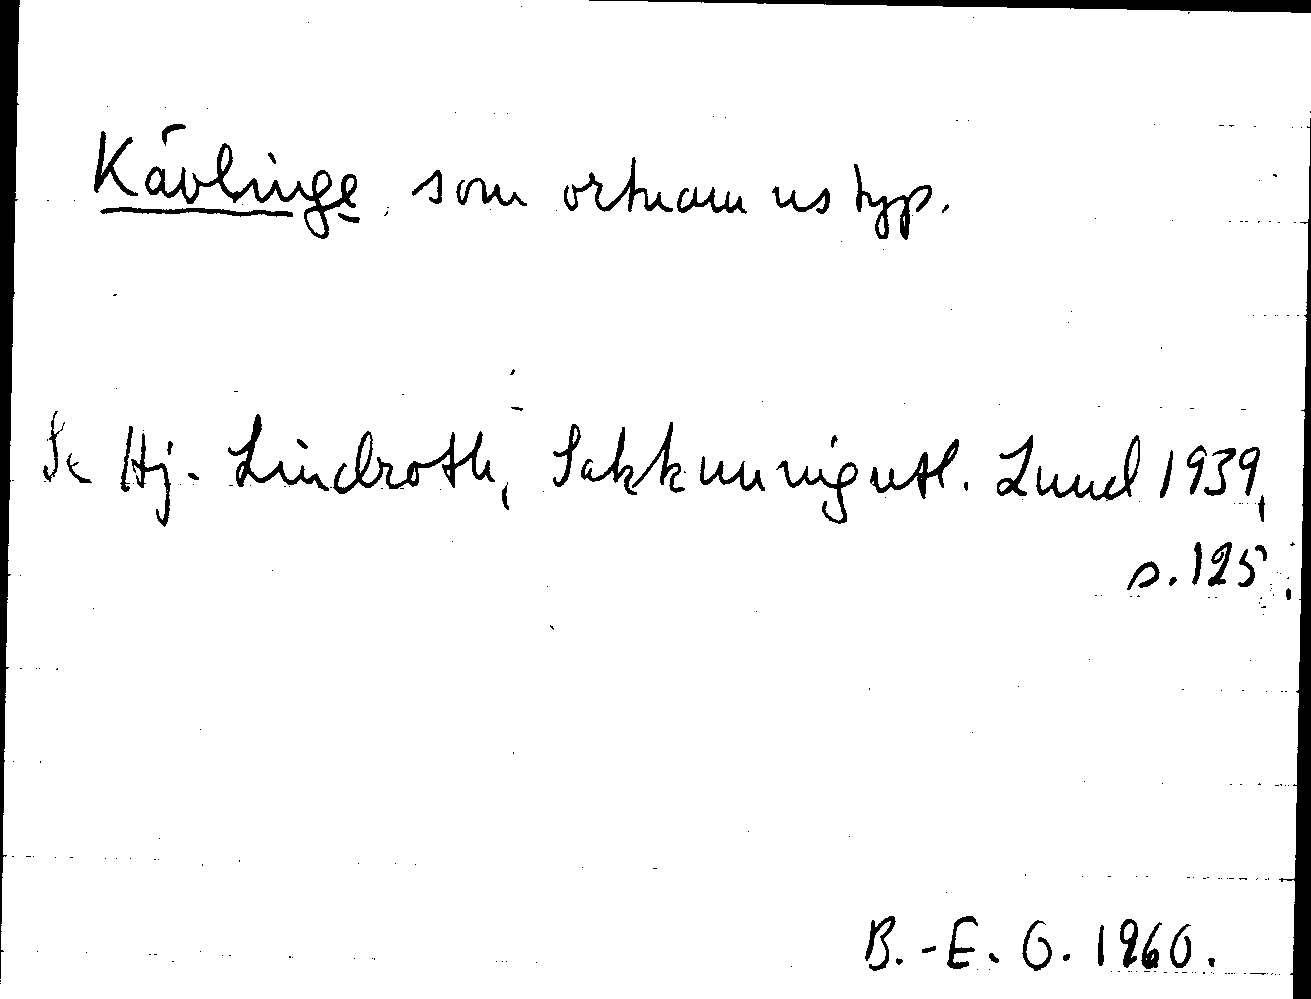 Kävlinge som ortnamnstyp.
Se Hj. Lindroth, Sakkunnigutl. Lund 1939,
s. 125.
B.-E. O. 1960.